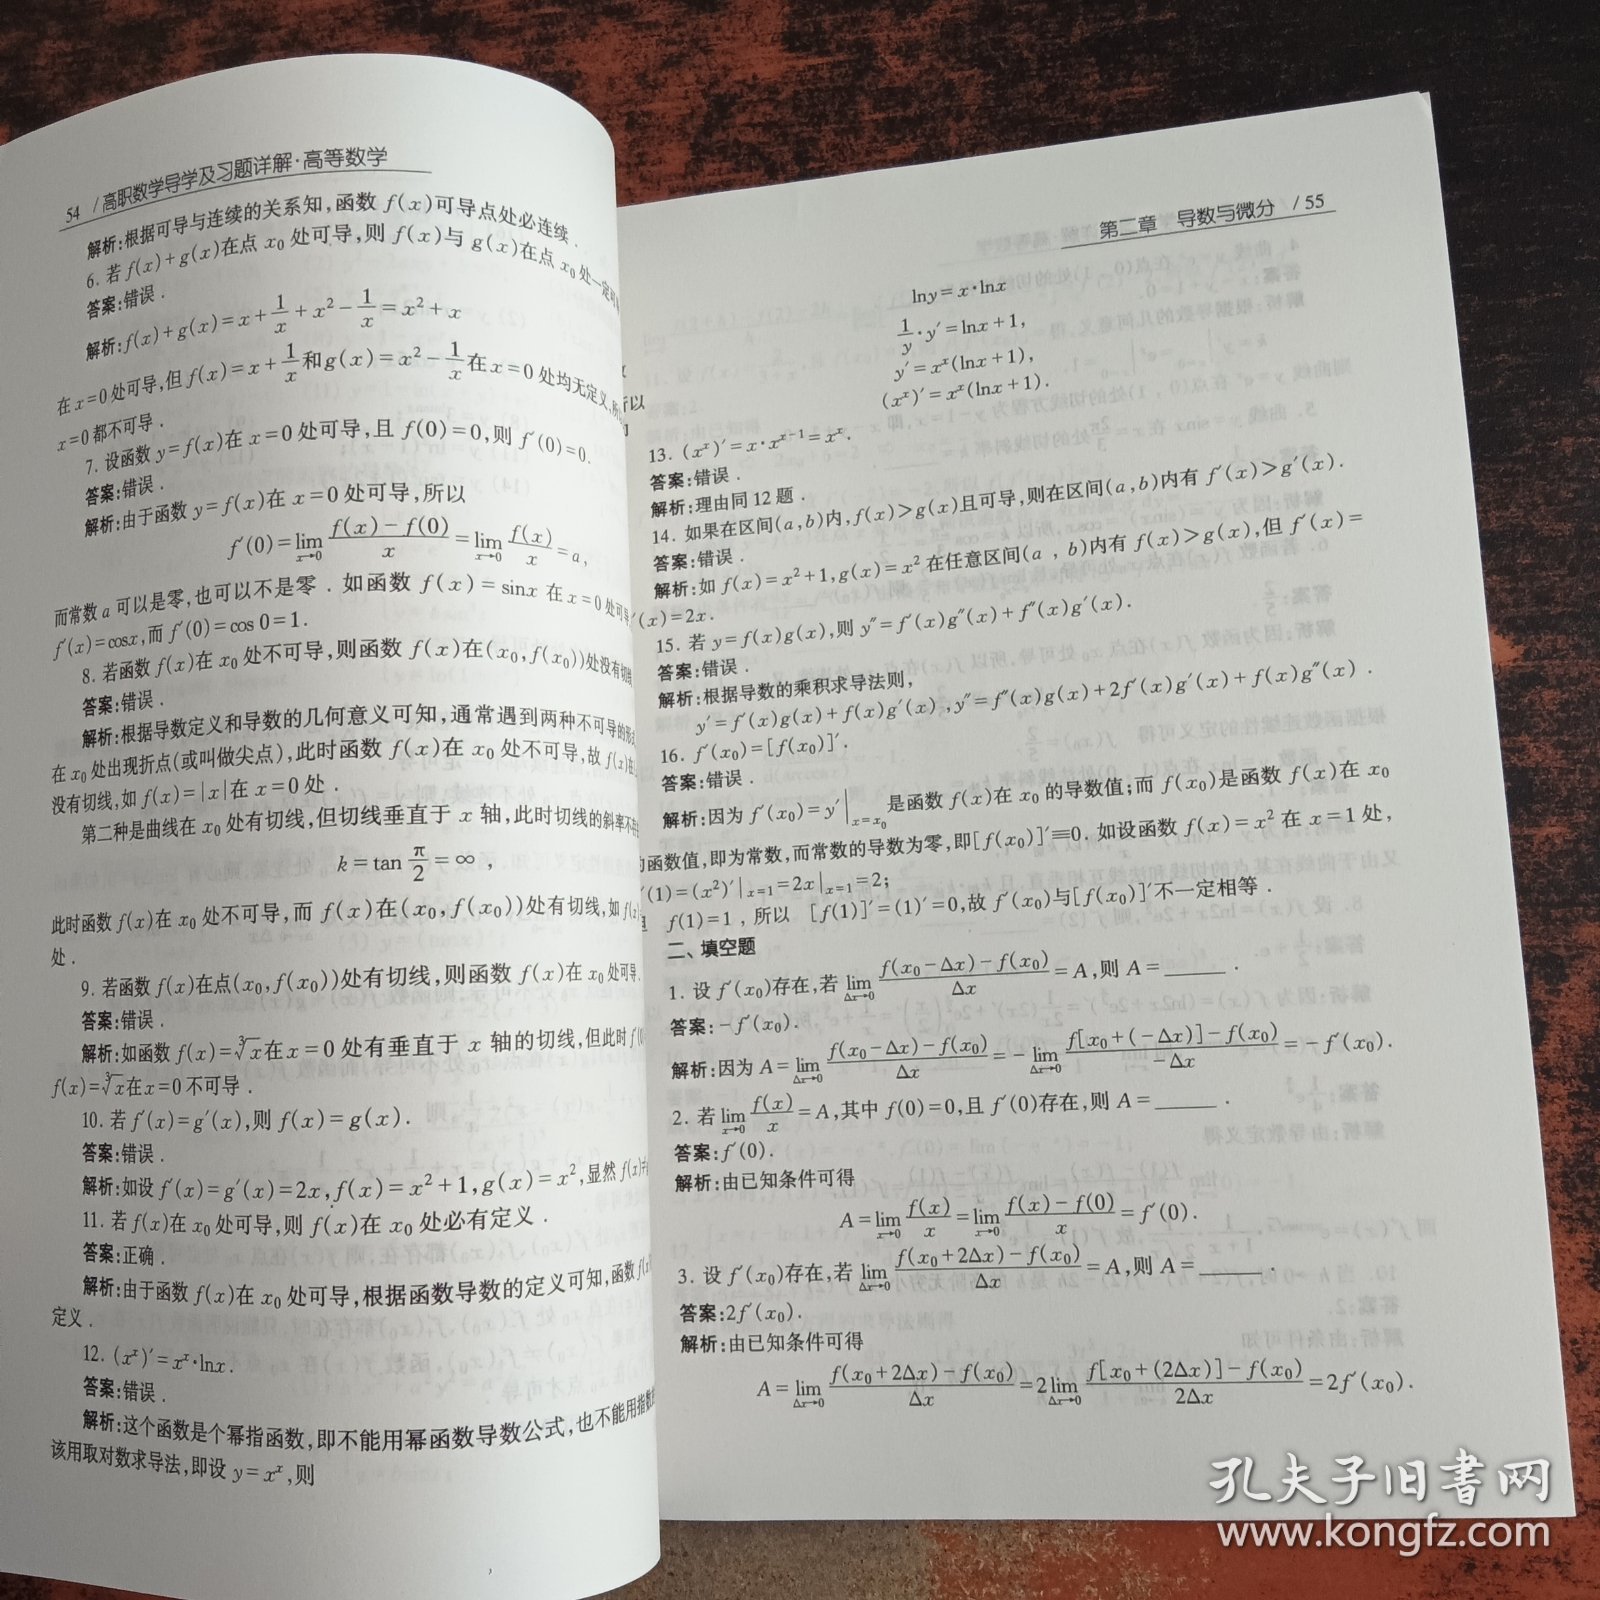 54 / 高职数学导学及习题详解·高等数学
解析:根据可导与连续的关系知,函数 f(x)可导点处必连续.
6. 若 f(x)+g(x)在点 x₀ 处可导,则 f(x)与 g(x)在点 x₀ 处一定可
答案:错误.
解析:f(x)+g(x)=x+1/x+x²-1/x=x²+x
在 x=0处可导,但f(x)=x+1/x和g(x)=x²-1/x在x=0处均无定义,所以
x=0都不可导.
7. 设函数 y=f(x)在 x=0 处可导,且 f(0)=0,则 f′(0)=0.
答案:错误.
解析:由于函数 y=f(x)在 x=0 处可导,所以
f′(0)=lim_{x→0} (f(x)-f(0))/x=lim_{x→0} f(x)/x=a,
而常数 a 可以是零,也可以不是零.如函数 f(x)=sinx 在 x=0处可导
f′(x)=cosx,而 f′(0)=cos 0=1.
8. 若函数 f(x)在 x₀ 处不可导,则函数 f(x)在(x₀,f(x₀))处没有切线
答案:错误.
解析:根据导数定义和导数的几何意义可知,通常遇到两种不可导的形式
在 x₀ 处出现折点(或叫做尖点),此时函数 f(x)在 x₀ 处不可导,故 f(x)在
没有切线,如 f(x)=|x|在 x=0 处.
第二种是曲线在 x₀ 处有切线,但切线垂直于 x 轴,此时切线的斜率不存在
k=tan π/2=∞,
此时函数 f(x)在 x₀ 处不可导,而 f(x)在(x₀,f(x₀))处有切线,如 f(x)
处.
9. 若函数 f(x)在点(x₀,f(x₀))处有切线,则函数 f(x)在 x₀ 处可导.
答案:错误.
解析:如函数 f(x)=∛x在 x=0 处有垂直于 x 轴的切线,但此时 f′(0)
f(x)=∛x在x=0不可导.
10. 若 f′(x)=g′(x),则 f(x)=g(x).
答案:错误.
解析:如设 f′(x)=g′(x)=2x,f(x)=x²+1,g(x)=x²,显然 f(x)≠
11. 若 f(x)在 x₀ 处可导,则 f(x)在 x₀ 处必有定义.
答案:正确.
解析:由于函数 f(x)在 x₀ 处可导,根据函数导数的定义可知,函数 f(x)
定义.
12. (xˣ)′=xˣ·lnx.
答案:错误.
解析:这个函数是个幂指函数,即不能用幂函数导数公式,也不能用指数
该用取对数求导法,即设 y=xˣ,则
第二章 导数与微分 / 55
lny=x·lnx
1/y·y′=lnx+1,
y′=xˣ(lnx+1),
(xˣ)′=xˣ(lnx+1).
13. (xˣ)′=x·xˣ⁻¹=xˣ.
答案:错误.
解析:理由同12题.
14. 如果在区间(a,b)内,f(x)>g(x)且可导,则在区间(a,b)内有 f′(x)>g′(x).
答案:错误.
解析:如 f(x)=x²+1,g(x)=x² 在任意区间(a,b)内有 f(x)>g(x),但 f′(x)=
′(x)=2x.
15. 若 y=f(x)g(x),则 y″=f′(x)g″(x)+f″(x)g′(x).
答案:错误.
解析:根据导数的乘积求导法则,
y′=f′(x)g(x)+f(x)g′(x),y″=f″(x)g(x)+2f′(x)g′(x)+f(x)g″(x).
16. f′(x₀)=[f(x₀)]′.
答案:错误.
解析:因为 f′(x₀)=y′|ₓ₌ₓ₀ 是函数 f(x)在 x₀ 的导数值;而 f(x₀)是函数 f(x)在 x₀
的函数值,即为常数,而常数的导数为零,即[f(x₀)]′≡0.如设函数 f(x)=x² 在 x=1 处,
′(1)=(x²)′|ₓ₌₁=2x|ₓ₌₁=2;
f(1)=1,所以 [f(1)]′=(1)′=0,故 f′(x₀)与[f(x₀)]′不一定相等.
二、填空题
1. 设 f′(x₀)存在,若 lim_{Δx→0} (f(x₀-Δx)-f(x₀))/Δx=A,则 A=______.
答案:-f′(x₀).
解析:因为 A=lim_{Δx→0} (f(x₀-Δx)-f(x₀))/Δx=-lim_{Δx→0} (f[x₀+(-Δx)]-f(x₀))/(-Δx)=-f′(x₀).
2. 若 lim_{x→0} f(x)/x=A,其中 f(0)=0,且 f′(0)存在,则 A=______.
答案:f′(0).
解析:由已知条件可得
A=lim_{x→0} f(x)/x=lim_{x→0} (f(x)-f(0))/x=f′(0).
3. 设 f′(x₀)存在,若 lim_{Δx→0} (f(x₀+2Δx)-f(x₀))/Δx=A,则 A=______.
答案:2f′(x₀).
解析:由已知条件可得
A=lim_{Δx→0} (f(x₀+2Δx)-f(x₀))/Δx=2lim_{Δx→0} (f[x₀+(2Δx)]-f(x₀))/2Δx=2f′(x₀).
孔夫子旧书网
www.kongfz.com